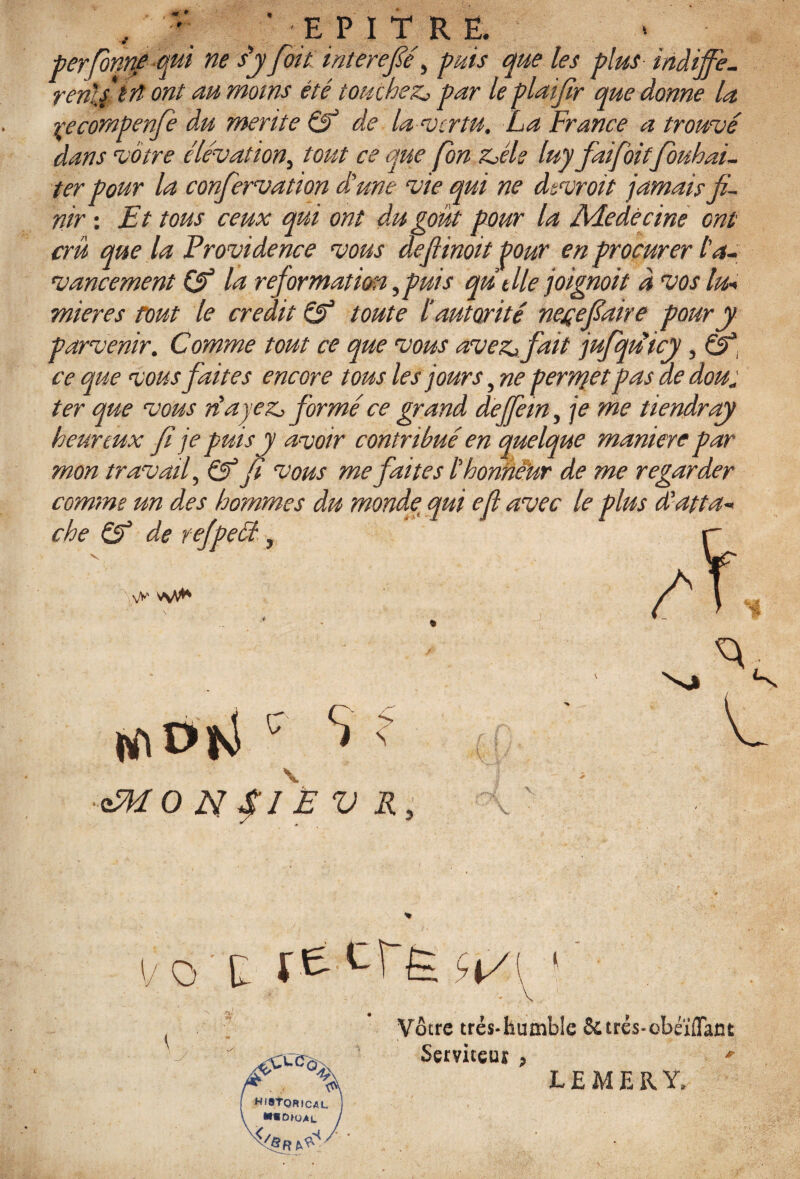 EPITRE.
personne qui ne s'y soit interessé, puis que les plus indiffe-
rens en ont au moins été touchez par le plaisir que donne la
recompense du merite & de la vertu. La France a trouvé
dans vôtre élévation, tout ce que son zéle luy faisoit souhai-
ter pour la conservation d'une vie qui ne devroit jamais fi-
nir : Et tous ceux qui ont du goût pour la Medecine ont
crû que la Providence vous destinoit pour en procurer l'a-
vancement & la reformation, puis qu'elle joignoit à vos lu-
mieres tout le credit & toute l'autorité necessaire pour y
parvenir. Comme tout ce que vous avez fait jusqu'icy, &
ce que vous faites encore tous les jours, ne permet pas de dou-
ter que vous n'ayez formé ce grand dessein, je me tiendray
heureux si je puis y avoir contribué en quelque maniere par
mon travail, & si vous me faites l'honneur de me regarder
comme un des hommes du monde qui est avec le plus d'atta-
che & de respect,
MONSIEVR,
Vôtre trés-humble & trés-obéïssant
Serviteur,
LEMERY.
WELLCOME
HISTORICAL
MEDICAL
LIBRARY